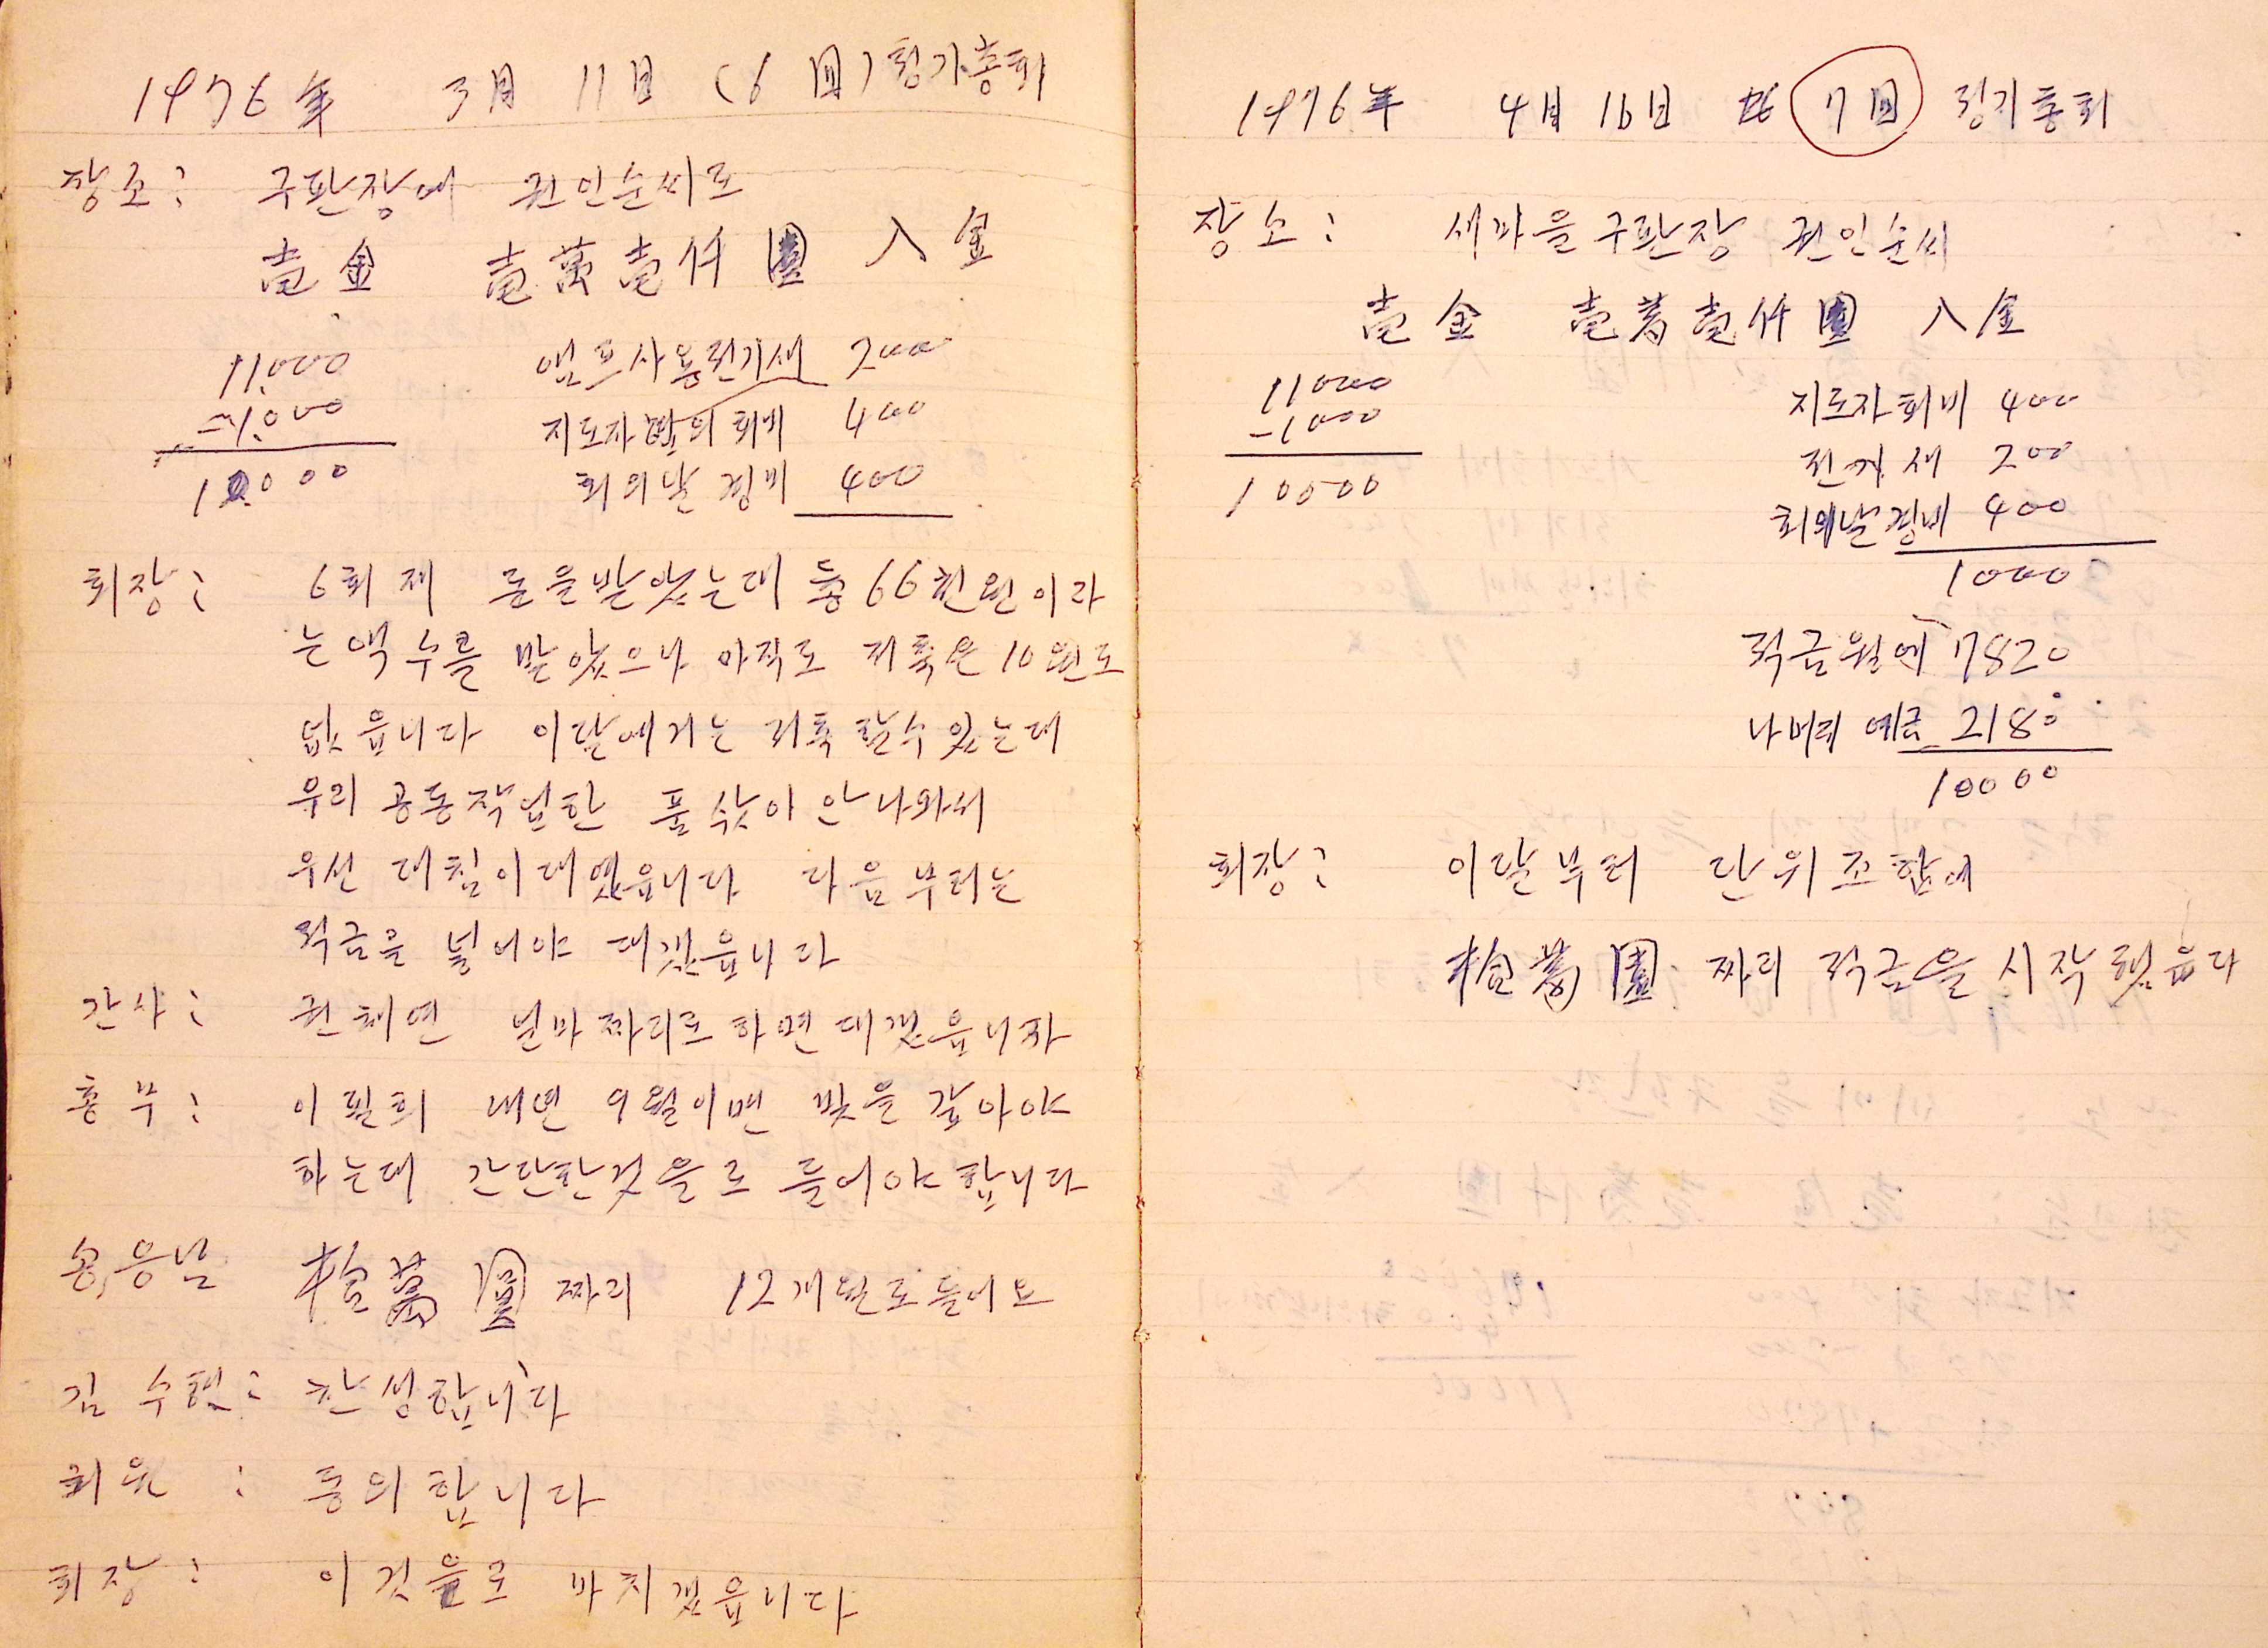 1976年 3月 11日 (6 回) 정기총회
장소: 구판장에 권인순씨로
壱金 壱萬壱仟圓 入金
11.000 앰프사용전기세 200
-1.000 지도자 회비 400
10000 회의날 경비 400
회장: 6회 제 돈을받았는대 총 66천원이라
는 액수를 받았으나 아직도 저축은 10원도
없읍니다 이달에거는 저축할수있는대
우리 공동작업한 품삯이 안나와서
우선 대침이대였읍니다 다음부터는
적금을 넣어야 대갰읍니다
간사: 권채연 얼마짜리로하면대겠읍니까
총무: 이필희 내년 9월이면 빚을 갚아야
하는대 간단한것을로 들어야합니다
송응남 拾萬圓짜리 12개월로들어요
김수현: 찬성합니다
회원 : 동의합니다
회장: 이것을로 마치겠읍니다
1976年 4月 16日 7回 정기총회
장소: 새마을구판장 권인순씨
壱金 壱萬壱仟圓 入金
11000 지도자회비 400
-1000 전기세 200
10000 회의날경비 400
1000
적금월에 7820
나머리 예금 2180
10000
회장: 이달부터 단위조합에
拾萬圓 짜리 적금을 시작했읍다